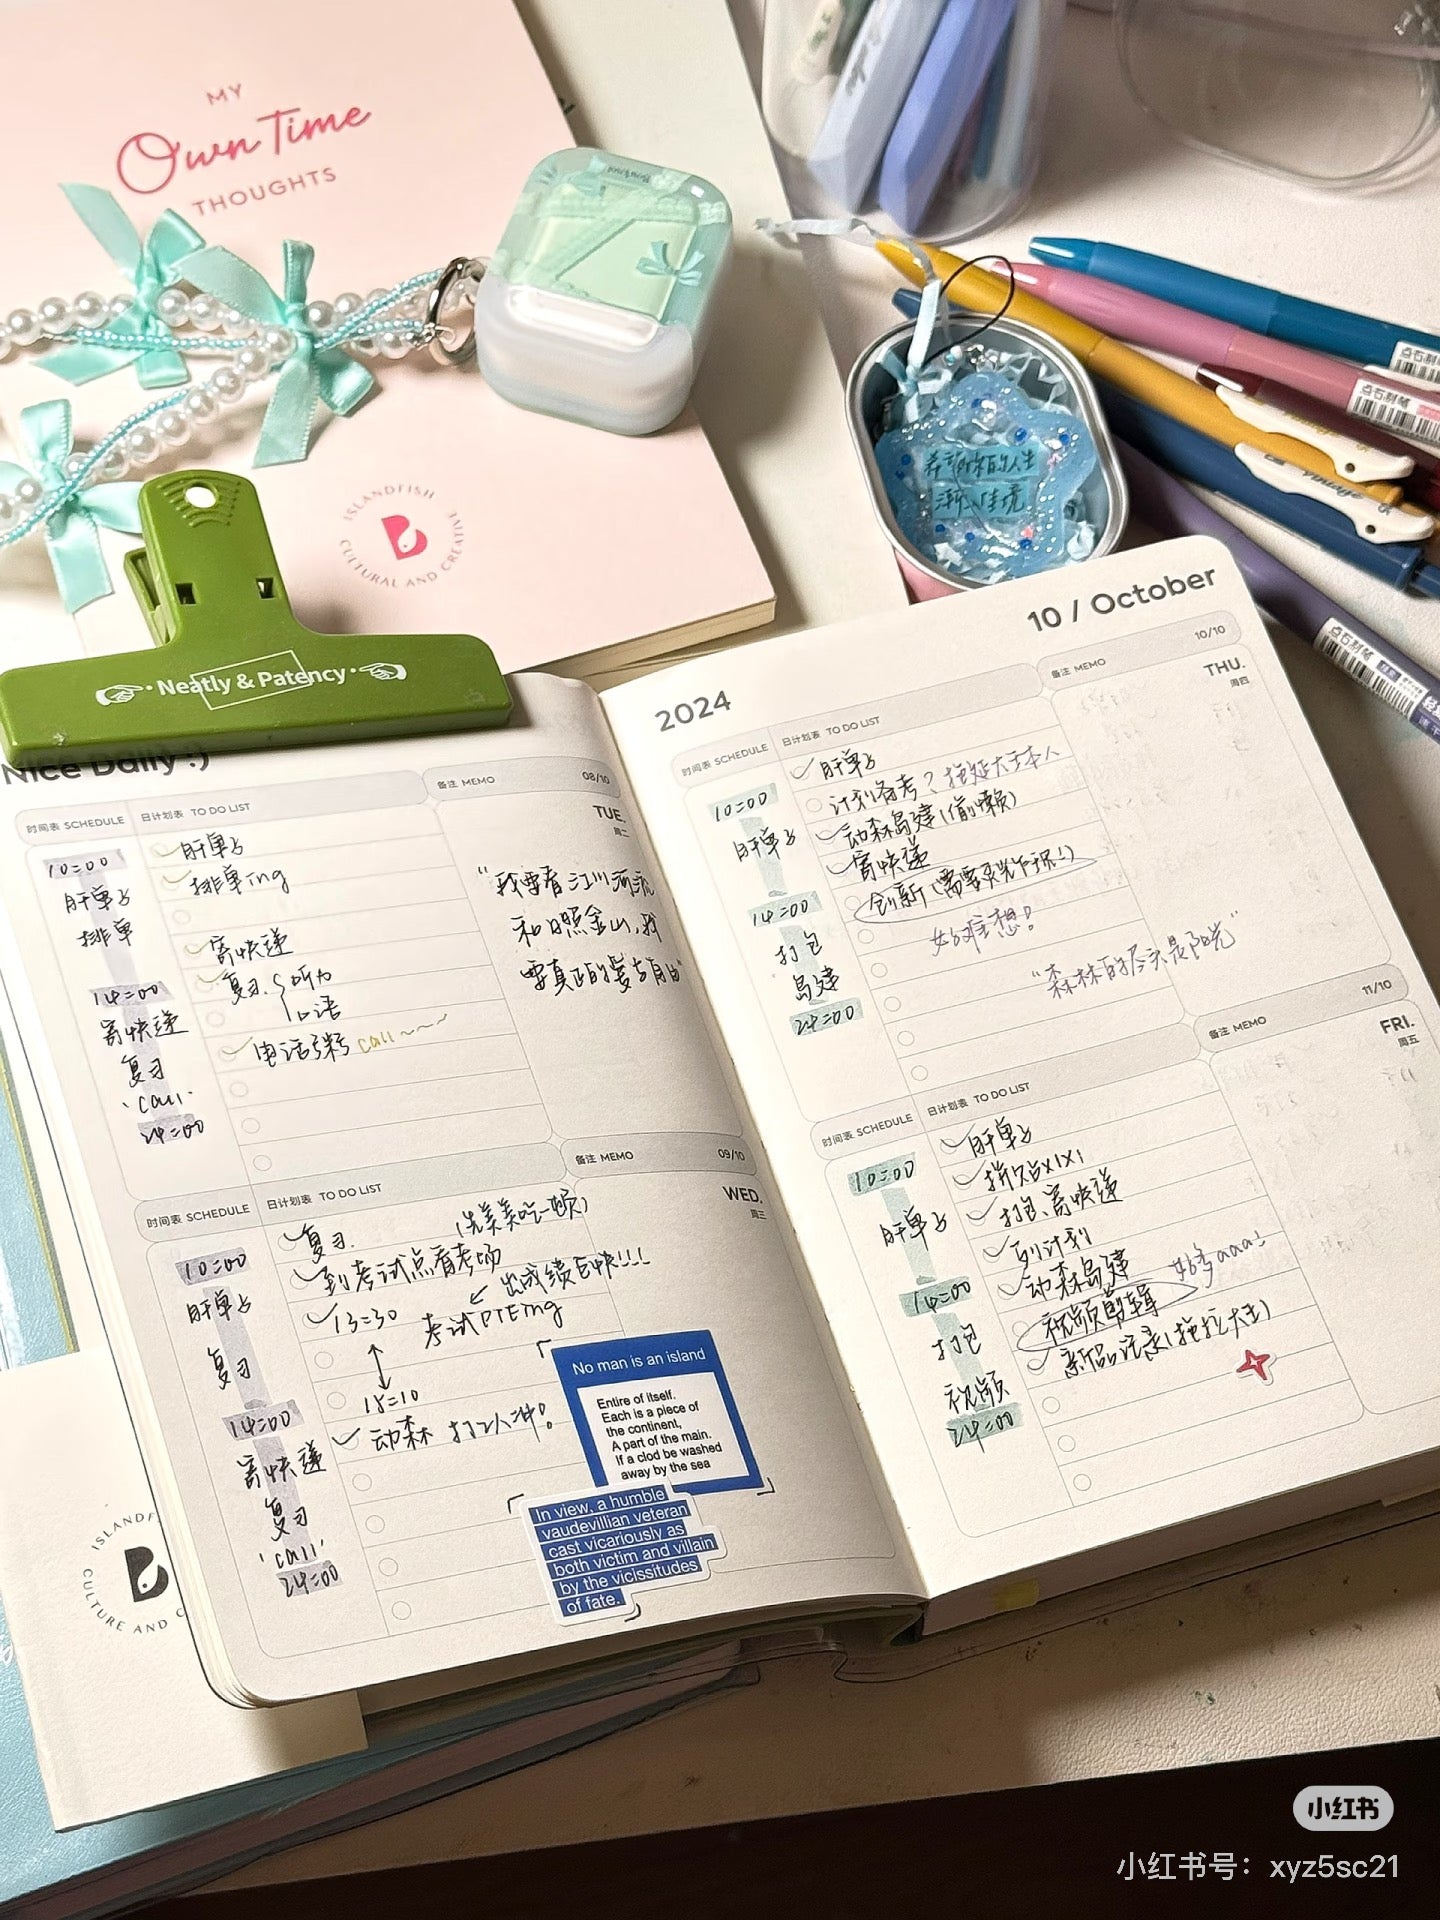 MY
Own Time
THOUGHTS
ISLANDFISH
CULTURAL AND CREATIVE
Neatly & Patency
希望你的人生
渐入佳境
点石制笔
点石制笔
点石制笔
vintage
Nice Daily :)
时间表 SCHEDULE
日计划表 TO DO LIST
备注 MEMO
08/10
TUE.
周二
10:00
肝单子
排单
14:00
寄快递
复习
'call'
24:00
肝单子
排单ing
寄快递
复习 听力
口语
电话粥 call~~~
"我要看江川河流
和日照金山,我
要真正的爱与自由"
时间表 SCHEDULE
日计划表 TO DO LIST
备注 MEMO
09/10
WED.
周三
10:00
肝单子
复习
14:00
寄快递
复习
'call'
24:00
复习. (先美美吃一顿)
到考试点看考场
13:30 考试PTEing
← 出成绩巨快!!!!
18:10
动森 打工人冲!
No man is an island
Entire of itself.
Each is a piece of
the continent,
A part of the main.
If a clod be washed
away by the sea
In view, a humble
vaudevillian veteran
cast vicariously as
both victim and villain
by the vicissitudes
of fate.
2024
10 / October
时间表 SCHEDULE
日计划表 TO DO LIST
备注 MEMO
10/10
THU.
周四
10:00
肝单子
14:00
打包
岛建
24:00
肝单子
计划备考? 拖延大王本人
动森岛建(偷懒)
寄快递
创新(需要灵光乍现!)
好难想!
"森林的尽头是阳光"
时间表 SCHEDULE
日计划表 TO DO LIST
备注 MEMO
11/10
FRI.
周五
10:00
肝单子
14:00
打包
视频
24:00
肝单子
打包、寄快递
列计划
动森岛建
视频剪辑 好多aaaa!
新品记录(拖拉大王)
ISLANDF
CULTURE AND C
小红书
小红书号：xyz5sc21